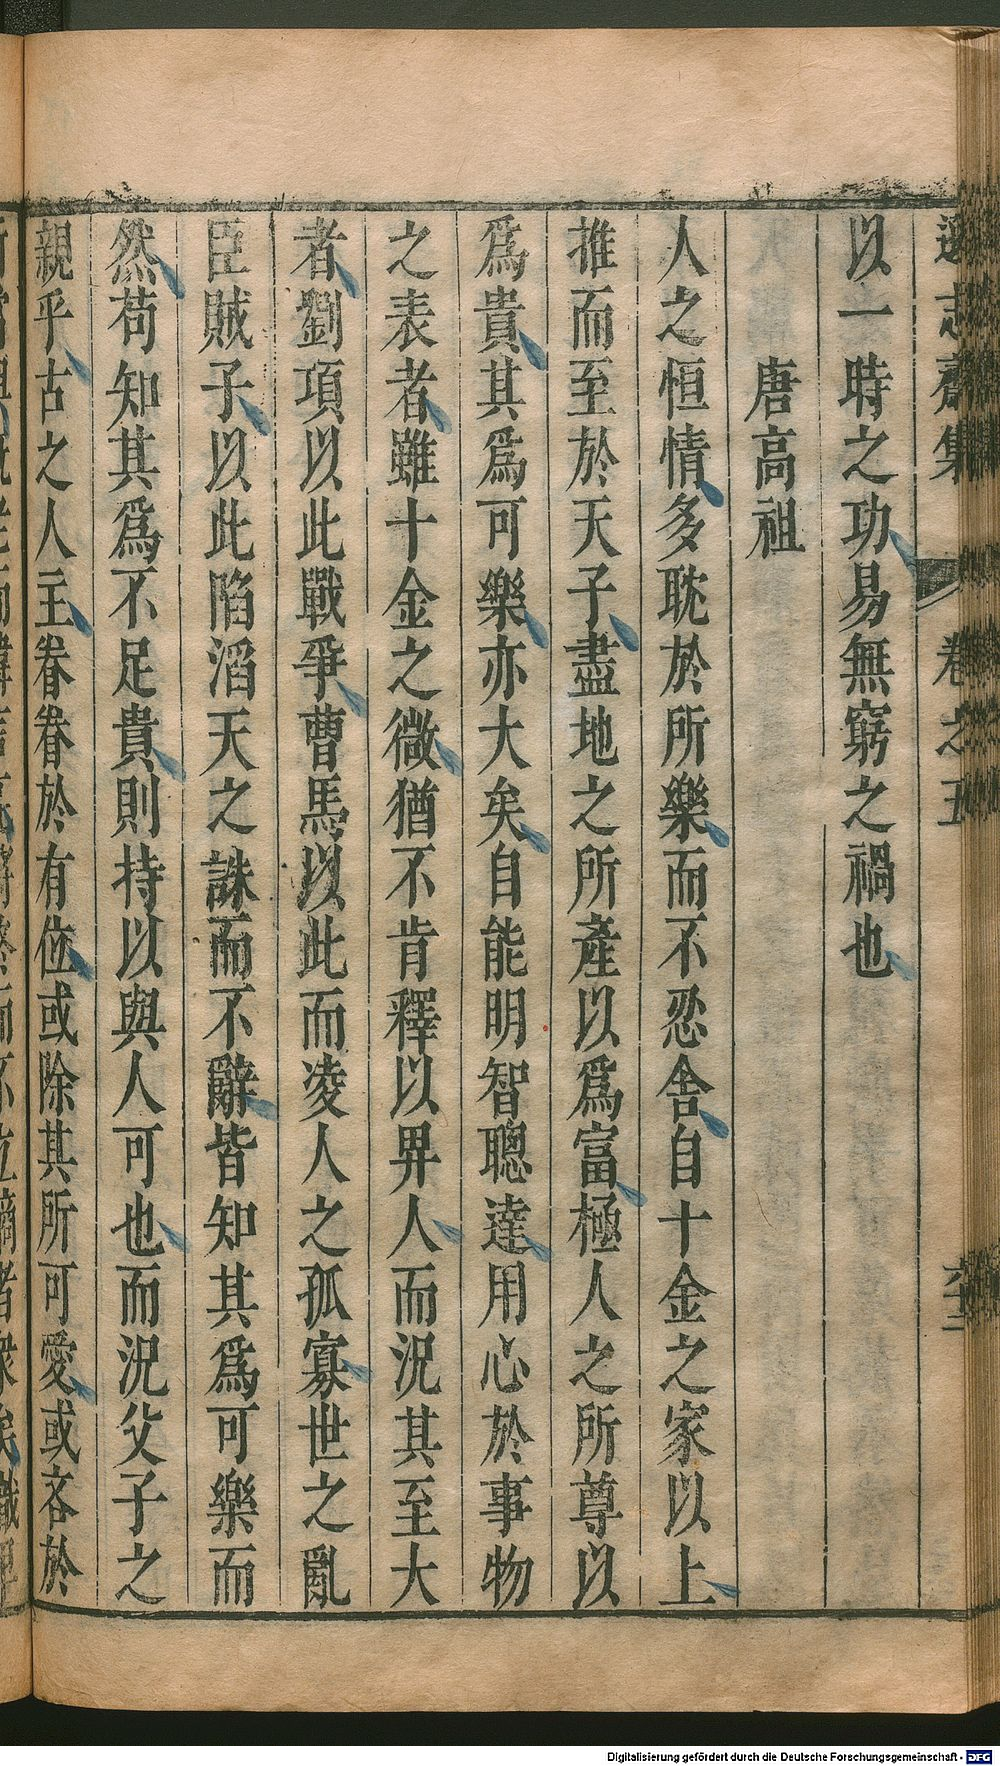 遜志齋集 卷之五
以一時之功易無窮之禍也
唐高祖
人之恒情多耽於所樂而不忍舍自十金之家以上
推而至於天子盡地之所產以為富極人之所尊以
為貴其為可樂亦大矣自能明智聰達用心於事物
之表者雖十金之微猶不肯釋以畀人而況其至大
者劉項以此戰爭曹馬以此而凌人之孤寡世之亂
臣賊子以此陷滔天之誅而不辭皆知其為可樂而
然苟知其為不足貴則持以與人可也而況父子之
親乎古之人主眷眷於有位或除其所可愛或吝於
Digitalisierung gefördert durch die Deutsche Forschungsgemeinschaft - DFG